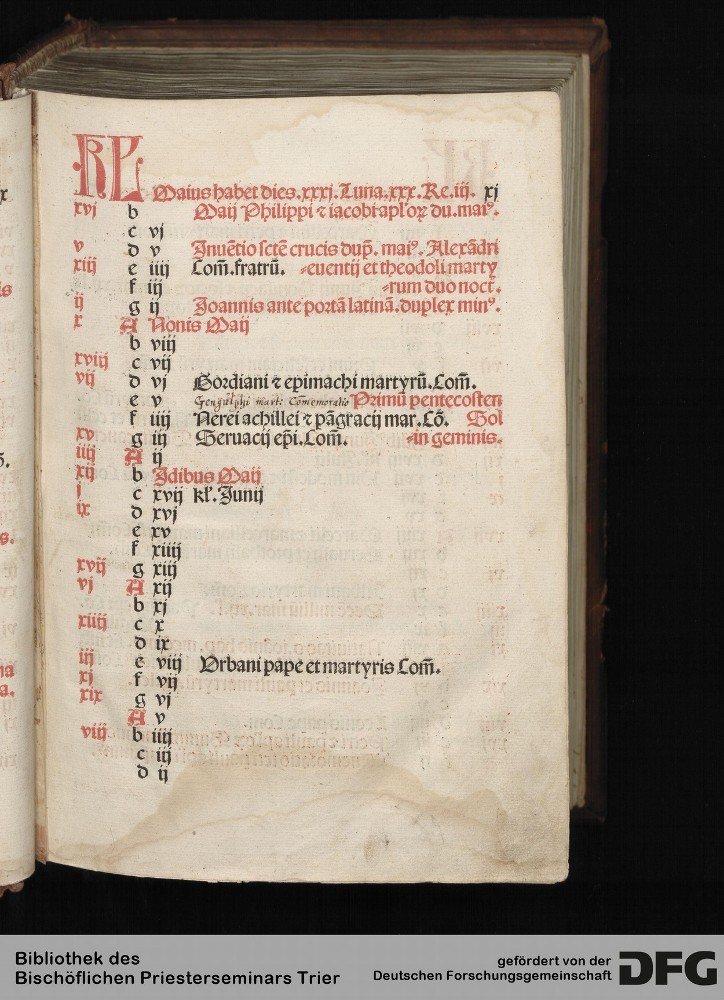 KL Maius habet dies.xxxj.Luna.xxx.Re.iij. xj
xvj b Maij Philippi ⁊ iacobi aplōꝝ du.maiꝰ.
c vj
v d v Inuētio sctē crucis dup̄. maiꝰ. Alexādri
xiij e iiij Com̄.fratrū. euentij et theodoli marty
f iij rum duo noct.
ij g ij Joannis ante portā latinā.duplex minꝰ.
x A Nonis Maij
b viij
xviij c vij
vij d vj Gordiani ⁊ epimachi martyrū.Com̄.
e v Gengulphi mart: Com̄emoratio Primū pentecosten
f iiij Nerei achillei ⁊ pāgracij mar.Cō. Sol
xv g iij Seruacij ep̄i.Com̄. in geminis.
iiij A ij
xij b Idibus Maij
j c xvij kl̄.Junij
ix d xvj
e xv
f xiiij
xvij g xiij
vj A xij
b xj
xiiij c x
d ix
iij e viij Vrbani pape et martyris Com̄.
xj f vij
xix g vj
A v
viij b iiij
c iij
d ij
Bibliothek des
Bischöflichen Priesterseminars Trier
gefördert von der
Deutschen Forschungsgemeinschaft DFG